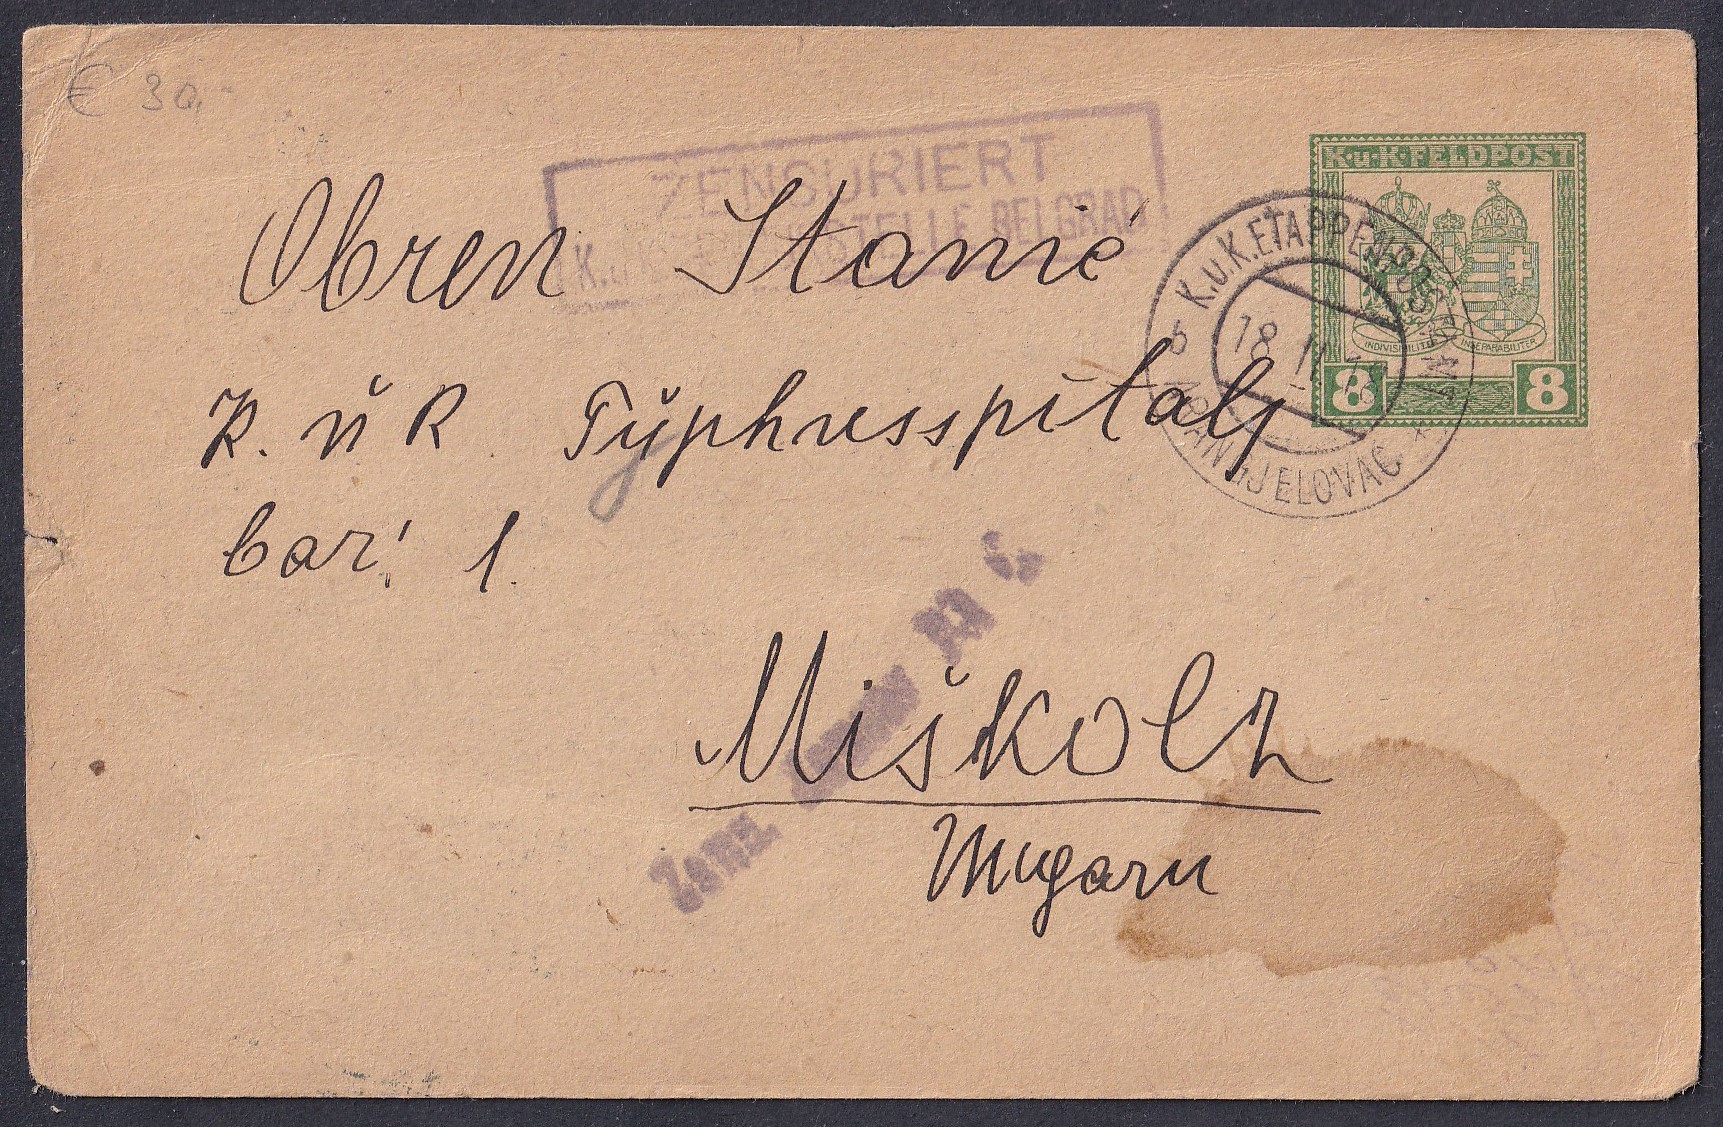 € 30,-
ZENSURIERT
BELGRAD
K.u.K. FELDPOST
INDIVISIBILITER INSEPARABILITER
8 8
K.u.K. ETAPPENPOSTAMT
18 II
b
ARANGJELOVAC
Obren Stanić
K. ŭ K Typhusspital
bar. 1.
Miškolz
Ungarn
Zens